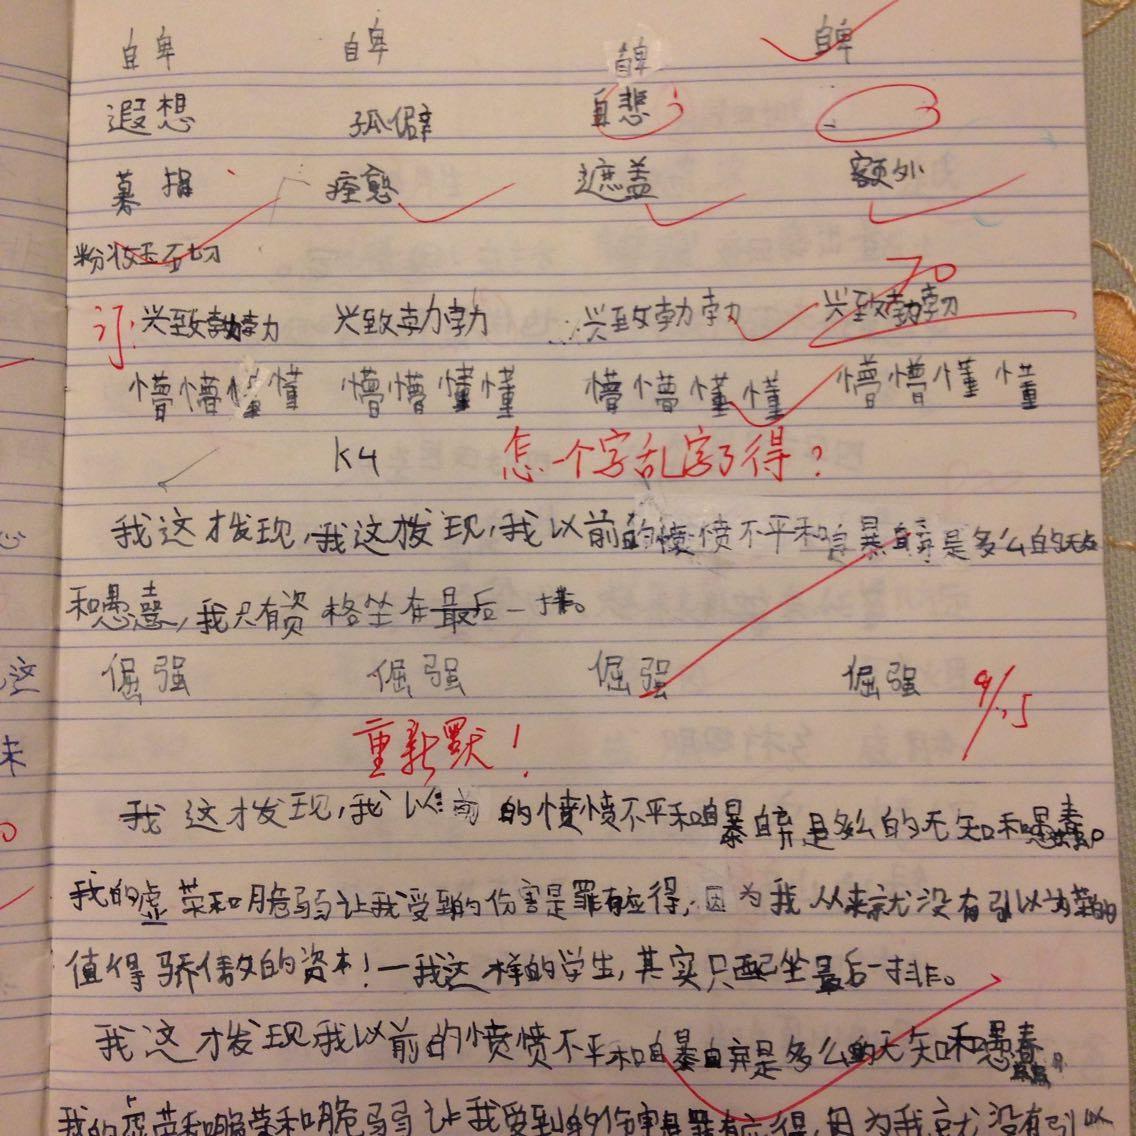 自卑 自卑 自卑 自卑
遐想 孤僻 自悲
募捐 痊愈 遮盖 额外
粉妆玉切
70
订: 兴致勃勃 兴致勃勃 兴致勃勃 兴致勃勃
懵懵懂懂 懵懵懂懂 懵懵懂懂 懵懵懂懂
K4 怎一个字乱字了得?
我这才发现,我这拨现,我以前的愤愤不平和自暴自弃是多么的无知
和愚蠢,我只有资格坐在最后一排。
倔强 倔强 倔强 倔强
9/15
重新默!
我这才发现,我以前的愤愤不平和自暴自弃是多么的无知和愚蠢。
我的虚荣和脆弱让我受到的伤害是罪有应得,因为我从来就没有引以为荣的
值得骄傲的资本!—我这样的学生,其实只配坐最后一排。
我这才发现我以前的愤愤不平和自暴自弃是多么的无知和愚蠢。
我的虚荣和脆荣和脆弱让我受到的伤害是罪有应得,因为我就没有引以